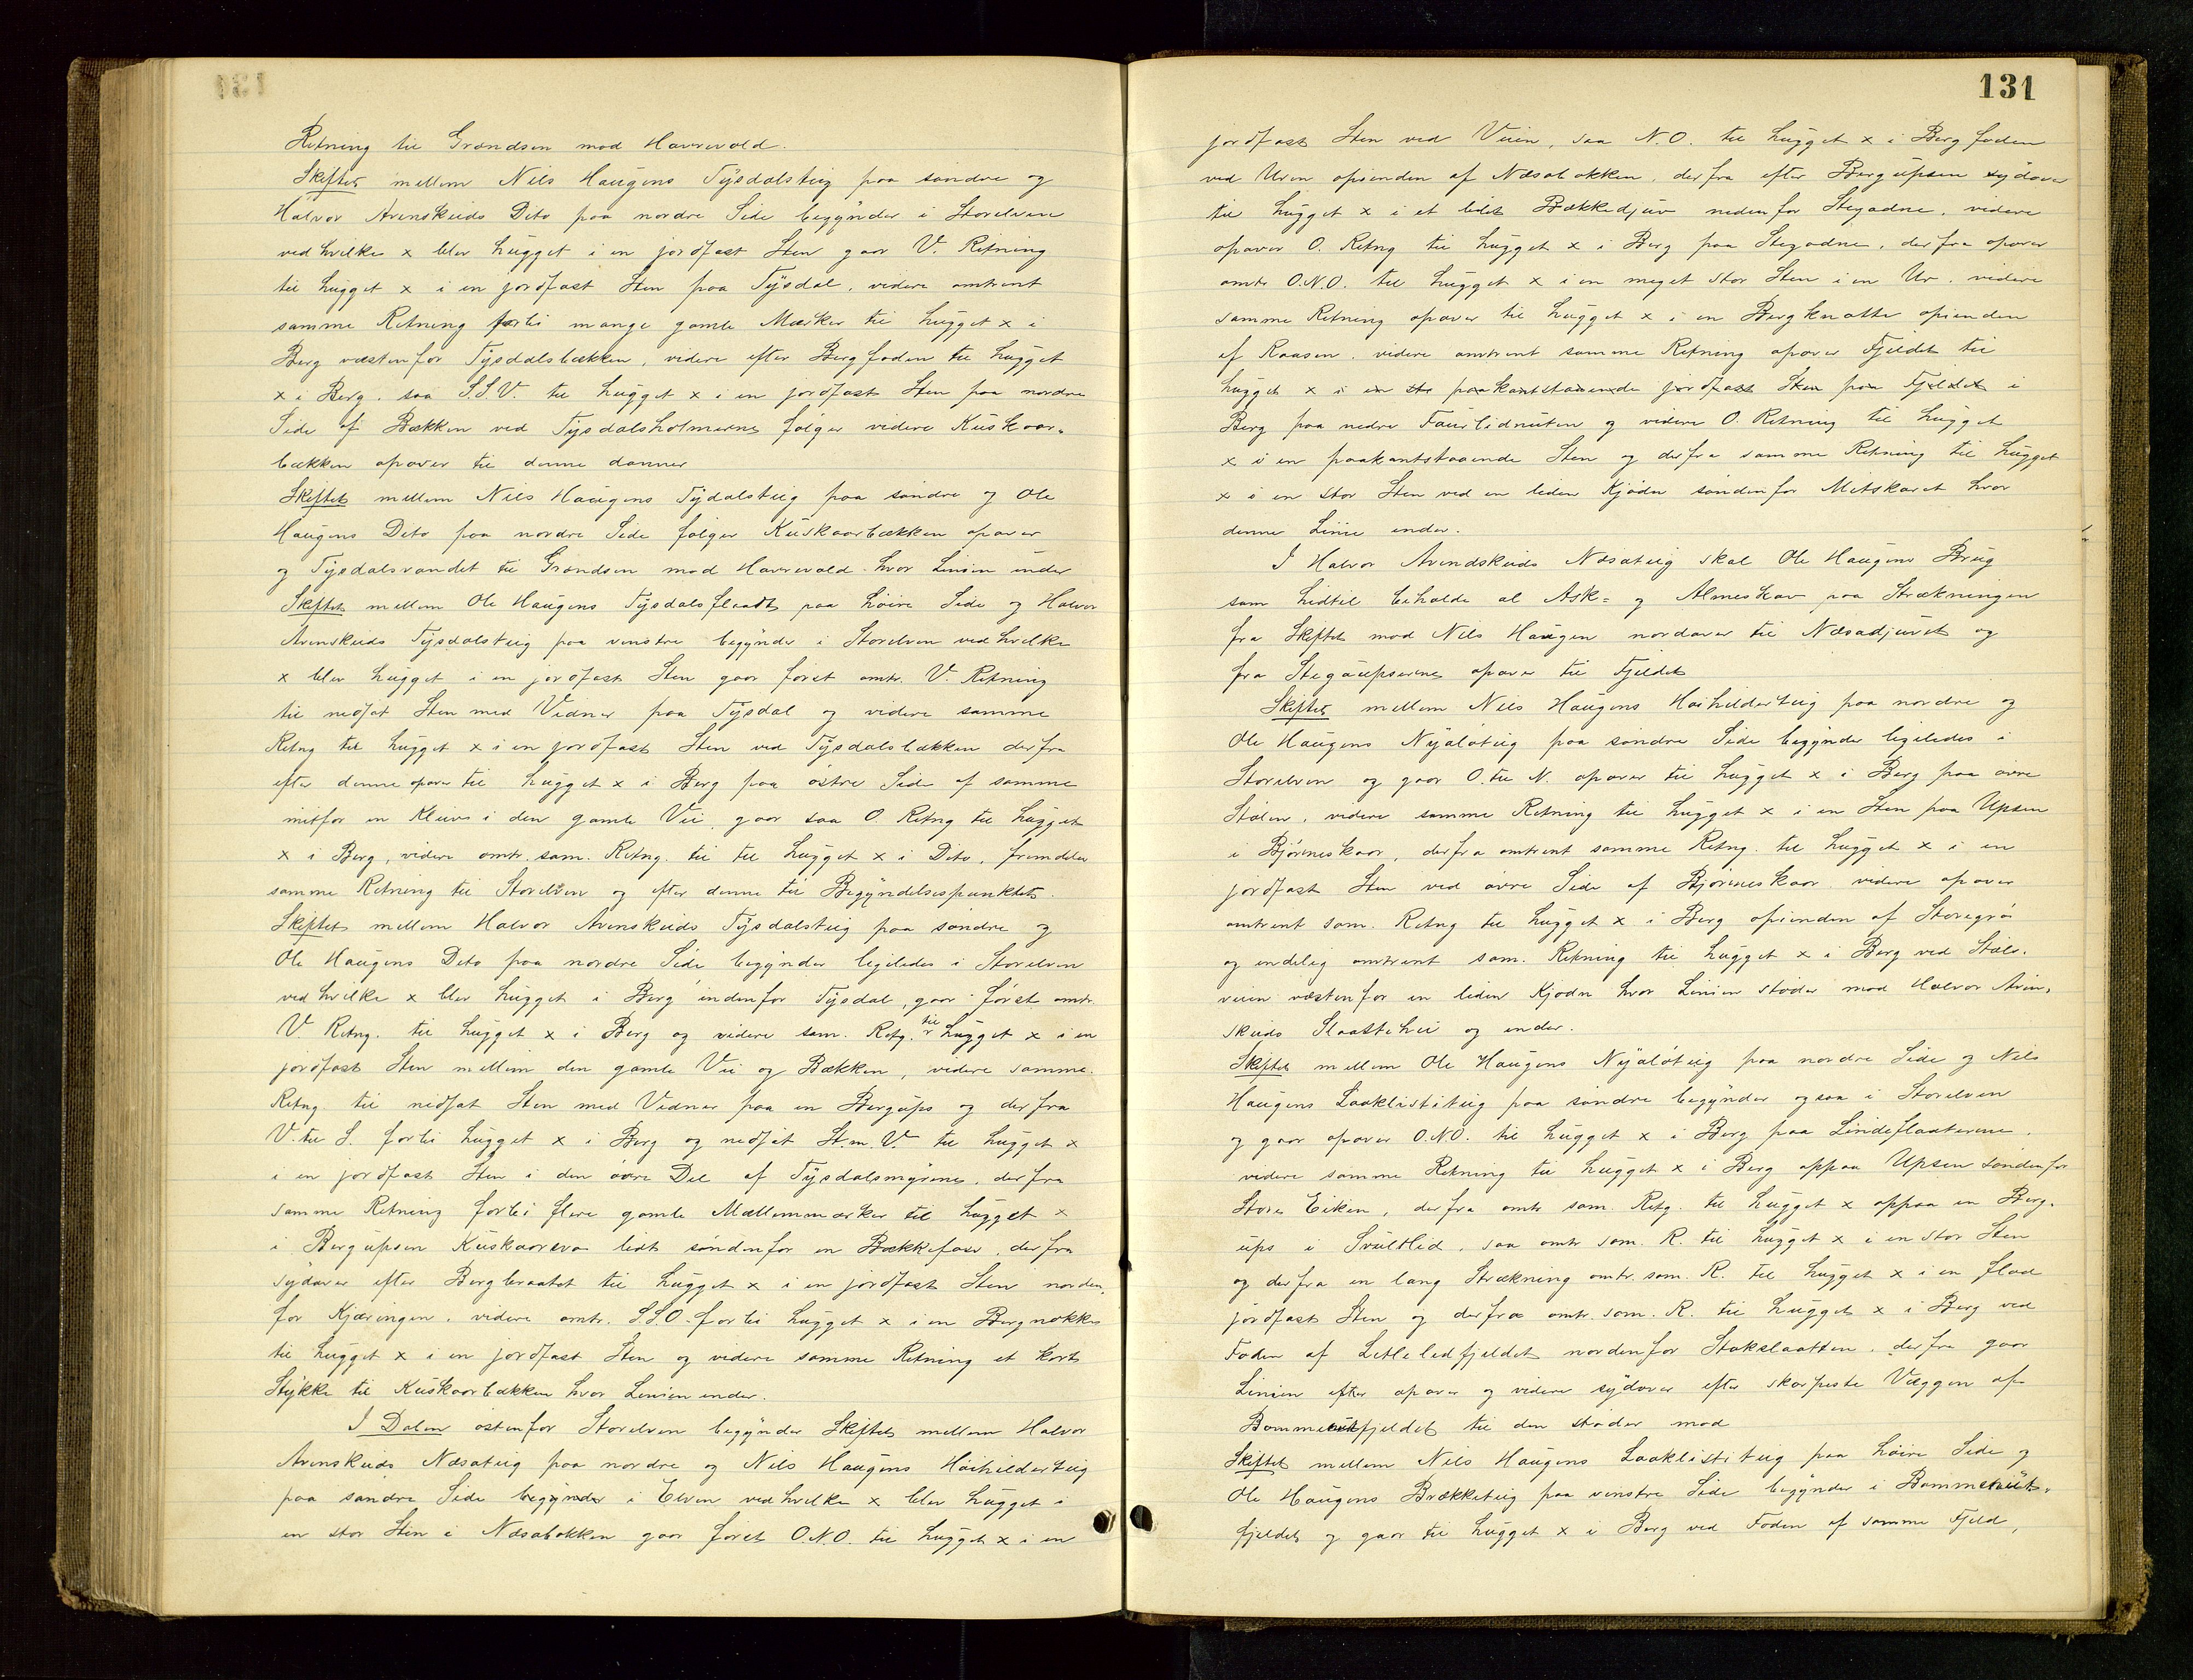 Retning til Grændsen mod Havrevold.
Skiftet mellem Nils Haugens Tysdalsteig paa søndre og
Halvor Avenskuds Dito paa nordre Side begynder i Storelven
ved hvilke x blev hugget i en jordfast Sten gaar V. Retning
til hugget x i en jordfast Sten paa Tysdal, videre omtrent
samme Retning forbi mange gamle Mærker til hugget x i
Berg væstenfor Tysdalsbækken, videre efter Bergfoden til hugget
x i Berg, saa S.S.V. til hugget x i en jordfast Sten paa nordre
Side af Bækken ved Tysdalsholmerne følger videre Kuskaar-
bækken opover til denne danner
Skiftet mellem Nils Haugens Tydalsteig paa søndre og Ole
Haugens Dito paa nordre Side følger Kuskaarbækken opover
og Tysdalsvandet til Grændsen mod Havrevold hvor Linien ender
Skiftet mellem Ole Haugens Tysdalsflaadt paa høire Side og Halvor
Avenskuds Tysdalsteig paa venstre begynder i Storelven ved hvilke
x blev hugget i en jordfast Sten gaar først omtr. V. Retning
til nedsat Sten med Vidner paa Tysdal og videre samme
Retng til hugget x i en jordfast Sten ved Tysdalsbækken derfra
efter denne opover til hugget x i Berg paa østre Side af samme
mitfor en Kleiva i den gamle Vei, gaar saa O. Retng til hugget
x i Berg, videre omtr. sam. Retng. til til hugget x i Dito, fremdeles
samme Retning til Storelven og efter denne til Begyndelsespunktet.
Skiftet mellem Halvor Avenskuds Tysdalsteig paa søndre og
Ole Haugens Dito paa nordre Side begynder ligeledes i Storelven
ved hvilke x blev hugget i Berg indenfor Tysdal, gaar først omtr.
V. Retng. til hugget x i Berg og videre sam. Retg. til hugget x i en
jordfast Sten mellem den gamle Vei og Bækken, videre samme
Retng. til nedsat Sten med Vidner paa en Bergups og derfra
V. til S. forbi hugget x i Berg og nedsat St. m. V. til hugget x
i en jordfast Sten i den øvre Del af Tysdalsmyrene, derfra
samme Retning forbi flere gamle Mellemmærker til hugget x
i Bergupsen lidt søndenfor en Bækkefaar, derfra
sydover efter Bergbraatet til hugget x i en jordfast Sten norden-
for Kjæringen, videre omtr. S.S.O. forbi hugget x i en Bergnokke
til hugget x i en jordfast Sten og videre samme Retning et kort
Stykke til Kuskaarbækken hvor Linien ender.
I Dalen østenfor Storelven begynder Skiftet mellem Halvor
Avenskuds Næsateig paa nordre og Nils Haugens Høihilderteig
paa søndre Side begynder i Elven ved hvilke x blev hugget i
en stor Sten i Næsabakken gaar først O.N.O. til hugget x i en
131
jordfast Sten ved Veien, saa N.O. til hugget x i Bergfoden
ved Uren opienden af Næsabakken, derfra efter Bergupsen sydover
til hugget x i et lidet Bækkedjuv nedenfor Stegadne, videre
opover O. Retng til hugget x i Berg paa Stegadne, derfra opover
omtr O.N.O. til hugget x i en meget stor Sten i en Ur, videre
samme Retning opover til hugget x i en Bergknatte opienden
af Raasen, videre omtrent samme Retning opover Fjeldet til
hugget x i en sto paakantstaaende jordfast Sten paa Fjeldet i
Berg paa nedre Faurlidnuten og videre O. Retning til hugget
x i en paakantstaaende Sten og derfra samme Retning til hugget
x i en stor Sten ved en liden Kjødn søndenfor Mitskaret hvor
denne Linie ender.
I Halvor Avendskuds Næsateig skal Ole Haugens Brug
som hidtil beholde al Ask= og Almeskav paa Strækningen
fra Skiftet mod Nils Haugen nordover til Næsadjuvet og
fra Stegaupserne opover til Fjeldet
Skiftet mellem Nils Haugens Høihilderteig paa nordre og
Ole Haugens Nyaløteig paa søndre Side begynder ligeledes i
Storelven og gaar O. til N. opover til hugget x i Berg paa øvre
Stølen, videre samme Retning til hugget x i en Sten paa Upsen
i Bjørneskaar, derfra omtrent samme Retng. til hugget x i en
jordfast Sten ved øvre Side af Bjørneskaar videre opover
omtrent sam. Retng til hugget x i Berg opienden af Storegrø
og endelig omtrent sam. Retning til hugget x i Berg ved Støls-
veien væstenfor en liden Kjødn hvor Linien støder mod Halvor Aven-
skuds Slaattehei og ender.
Skiftet mellem Ole Haugens Nyaløteig paa nordre Side og Nils
Haugens Laaklistiteig paa søndre begynder ogsaa i Storelven
og gaar opover O.N.O. til hugget x i Berg paa Lindeflaaterne,
videre samme Retning til hugget x i Berg oppaa Upsen søndenfor
Store Eiken, derfra omtr sam. Retg. til hugget x oppaa en Berg-
ups i Svultlid, saa omtr sam. R. til hugget x i en stor Sten
og derfra en lang Strækning omtr. sam R. til hugget x i en flad
jordfast Sten og derfra omtr. sam. R. til hugget x i Berg ved
Foden af Litlelidfjeldet nordenfor Stokslaatten, derfra gaar
Linien efter opover og videre sydover efter skarpeste Væggen af
Bommenutfjeldet til den støder mod
Skiftet mellem Nils Haugens Laaklistiteig paa høire Side og
Ole Haugens Brækketeig paa venstre Side begynder i Bommenut-
fjeldet og gaar til hugget x i Berg ved Foden af samme Fjeld,